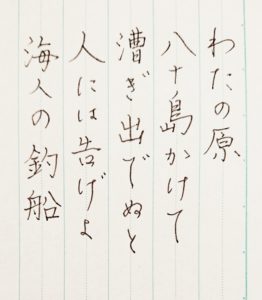 わたの原
八十島かけて
漕ぎ出でぬと
人には告げよ
海人の釣船